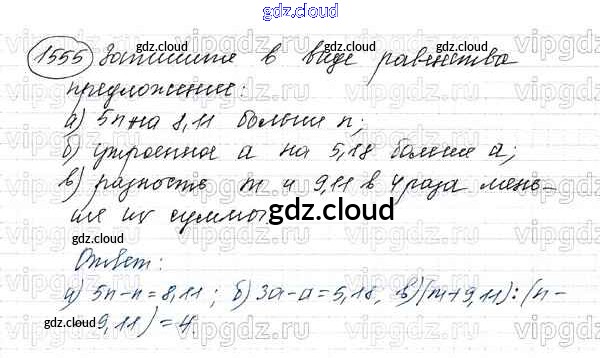 gdz.cloud
1555 Запишите в виде равенства
предложение:
а) 5n на 8,11 больше n;
б) утроенное a на 5,18 больше a;
в) разность m и 9,11 в 4 раза мень-
ше их суммы
gdz.cloud
Ответ:
а) 5n-n=8,11; б) 3a-a=5,18, в) (m+9,11):(n-
9,11)=4